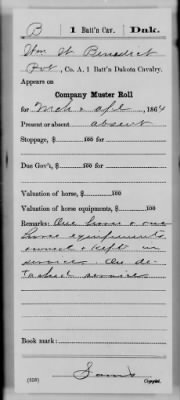 B | 1 Batt'n Cav. | Dak.
Wm H Benedict
Pvt, Co. A, 1 Batt'n Dakota Cavalry.
Appears on
Company Muster Roll
for Mch & Apl, 1864
Present or absent absent
Stoppage, $ 100 for
Due Gov't, $ 100 for
Valuation of horse, $ 100
Valuation of horse equipments, $ 100
Remarks: One horse & one
horse equipments
owned & kept in
service. On de-
tached service
Book mark:
(358) Copyist.